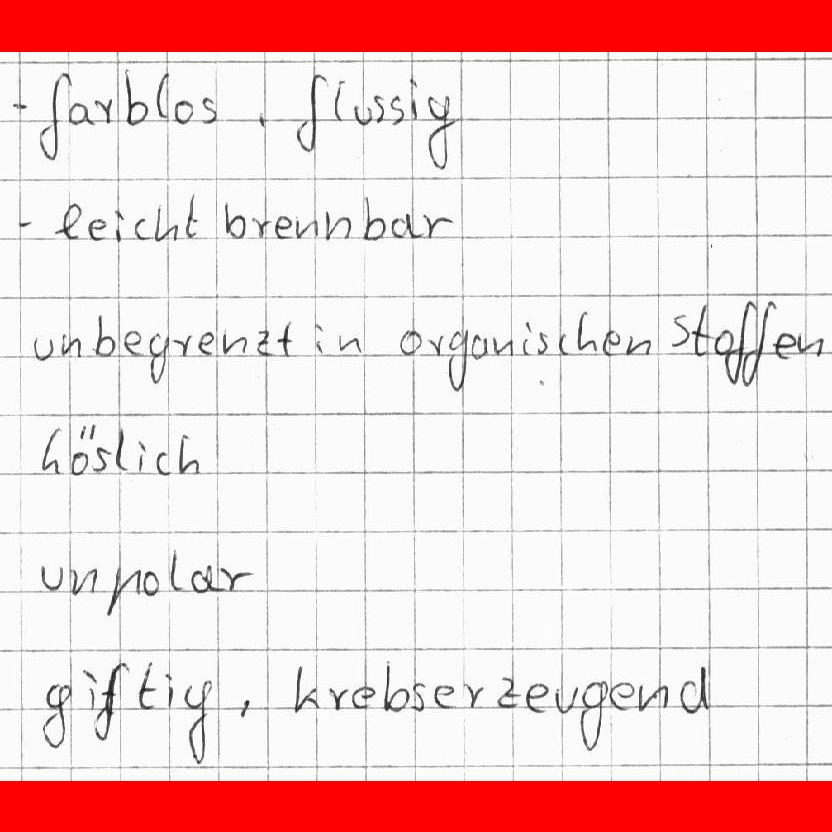 - farblos, flussig
- leicht brennbar
unbegrenzt in organischen Stoffen
höslich
unpolar
giftig, krebserzeugend